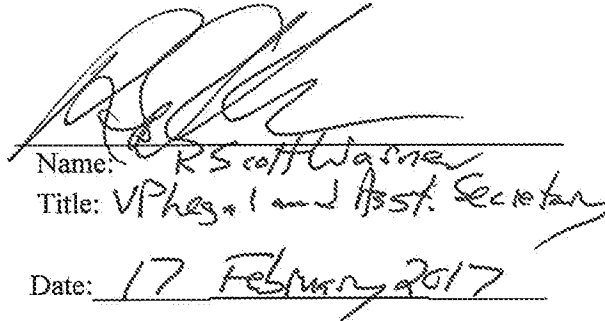 Name: R Scott Warner
Title: VP Legal and Asst. Secretary
Date: 17 February 2017